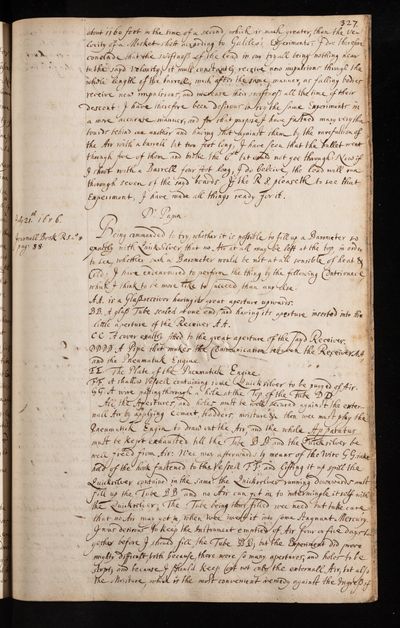 327.
about 1160 foot in the time of a second which is much greater, than the ve-
locity of a Musket shot according to Galileo's Experiments. I do therefore
conclude that the swiftness of the lead in our tryall being nothing near
to the sayd velocity, it must constantly receive new impulsions through the
whole length of the barrell, much after the same manner, as falling bodies
receive new impulsions, and increase their swiftness all the time of their
Descent. I have therefore been desirous to try the same Experiments in
a more accurate manner, and for that purpose I have fastned many very thin
boards behind one another and having shot against them by the rarefaction of
the Air with a barrell but two foot long, I have seen that the bullet went
through five of them and broke the 6th but could not goe through. Now if
I shoot with a Barrell four foot long, I do believe, the lead will run
through seven of the sayd boards. If the R. S. pleaseth to see that
Experiment, I have made all things ready for it.
Dr. Papin
July 21th 1686.
Journall Book R.S.
pag: 88
Being commanded to try whether it is possible, to fill up a Barometer so
exactly with Quicksilver that no Air at all may be left at the top in order
to see, whether such a Barometer would be not at all sensible of heat &
cold; I have endeavoured to perform the thing by the following Contrivance
which I think to be more like to succeed than any else.
AA is a Glass Receiver having its great aperture upwards.
BB. A glass Tube sealed at one end, and having its aperture inserted into the
little aperture of the Receiver AA.
CC A cover exactly fitted to the great aperture of the sayd Receiver.
DDDD. A Pipe that makes the Communication between the Receiver AA
and the Pneumatick Engine
EE The Plate of the Pneumatick Engine.
FF A shallow Vessell containing some Quicksilver to be purged of Air.
GG A wire passing through a hole at the Top of the Tube DD
All the Apertures, and holes must be well secured against the exter-
nall Air by applying Cement, bladders, moisture & then wee must ply the
Pneumatick Engine to draw out the Air, and the whole Apparatus
must be kept exhausted till the Tube BB and the Quicksilver be
well freed from Air: Wee may afterwards by means of the Wire GG take
hold of the hook fastened to the Vessell FF, and lifting it up spill the
Quicksilver contained in the same, the Quicksilver running downwards must
fill up the Tube BB and no Air can get in to intermingle it self with
the Quicksilver; The Tube being thus filled wee need but take care
that no Air may get in, when wee invert it into some Stagnant Mercury.
I was desirous to keep the Instrument emptied of Air four or five days to-
gether before I should fill the Tube BB; but the Experiment did prove
mighty difficult both because there were so many apertures, and holes to be
stopt, and because I should keep out not only the externall Air, but also
the Moisture which is the most convenient remedy against the Ingress of